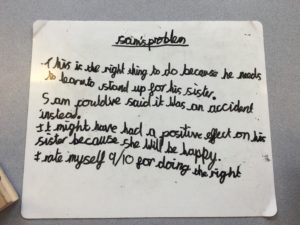 sam's problem
This is the right thing to do because he needs
to learn to stand up for his sister.
Sam could've said it was an accident
instead.
It might have had a positive effect on his
sister because she will be happy.
I rate myself 9/10 for doing the right